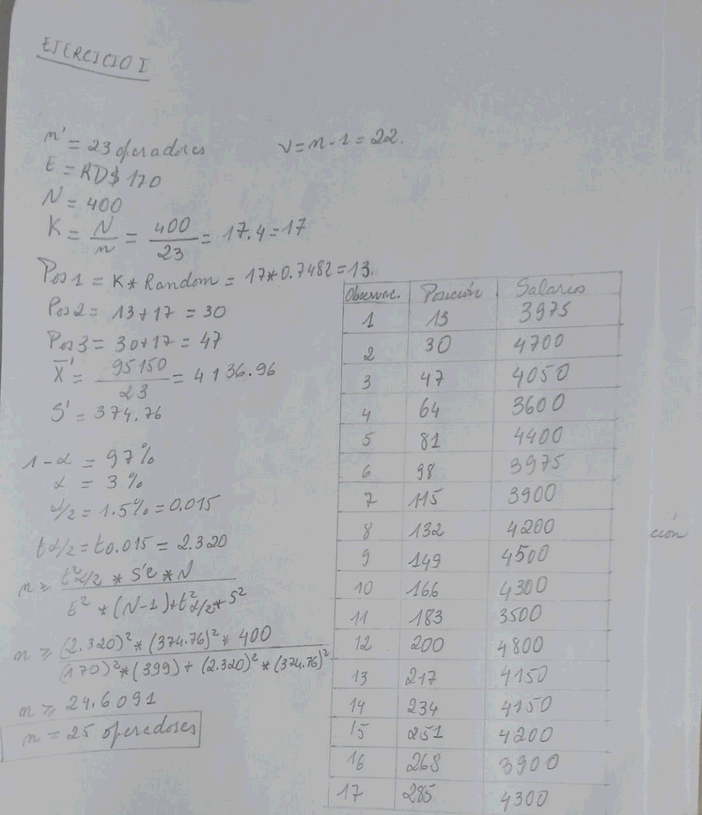 EJERCICIO I
n' = 23 operadores
V = n - 1 = 22.
E = RD$ 170
N = 400
K = N/n = 400/23 = 17.4 = 17
Pos 1 = K * Random = 17 * 0.7482 = 13.
Pos 2 = 13 + 17 = 30
Pos 3 = 30 + 17 = 47
X̄' = 95150/23 = 4136.96
S' = 374.76
1 - α = 97%
α = 3%
α/2 = 1.5% = 0.015
tα/2 = t0.015 = 2.320
n ≥ t²α/2 * S'² * N / E² * (N-1) + t²α/2 * S²
n ≥ (2.320)² * (374.76)² * 400 / (170)² * (399) + (2.320)² * (374.76)²
n ≥ 24.6091
n = 25 operadores
Observac. Posición Salarios
1 13 3975
2 30 4700
3 47 4050
4 64 3600
5 81 4400
6 98 3975
7 115 3900
8 132 4200
9 149 4500
10 166 4300
11 183 3500
12 200 4800
13 217 4150
14 234 4150
15 251 4200
16 268 3900
17 285 4300
ción